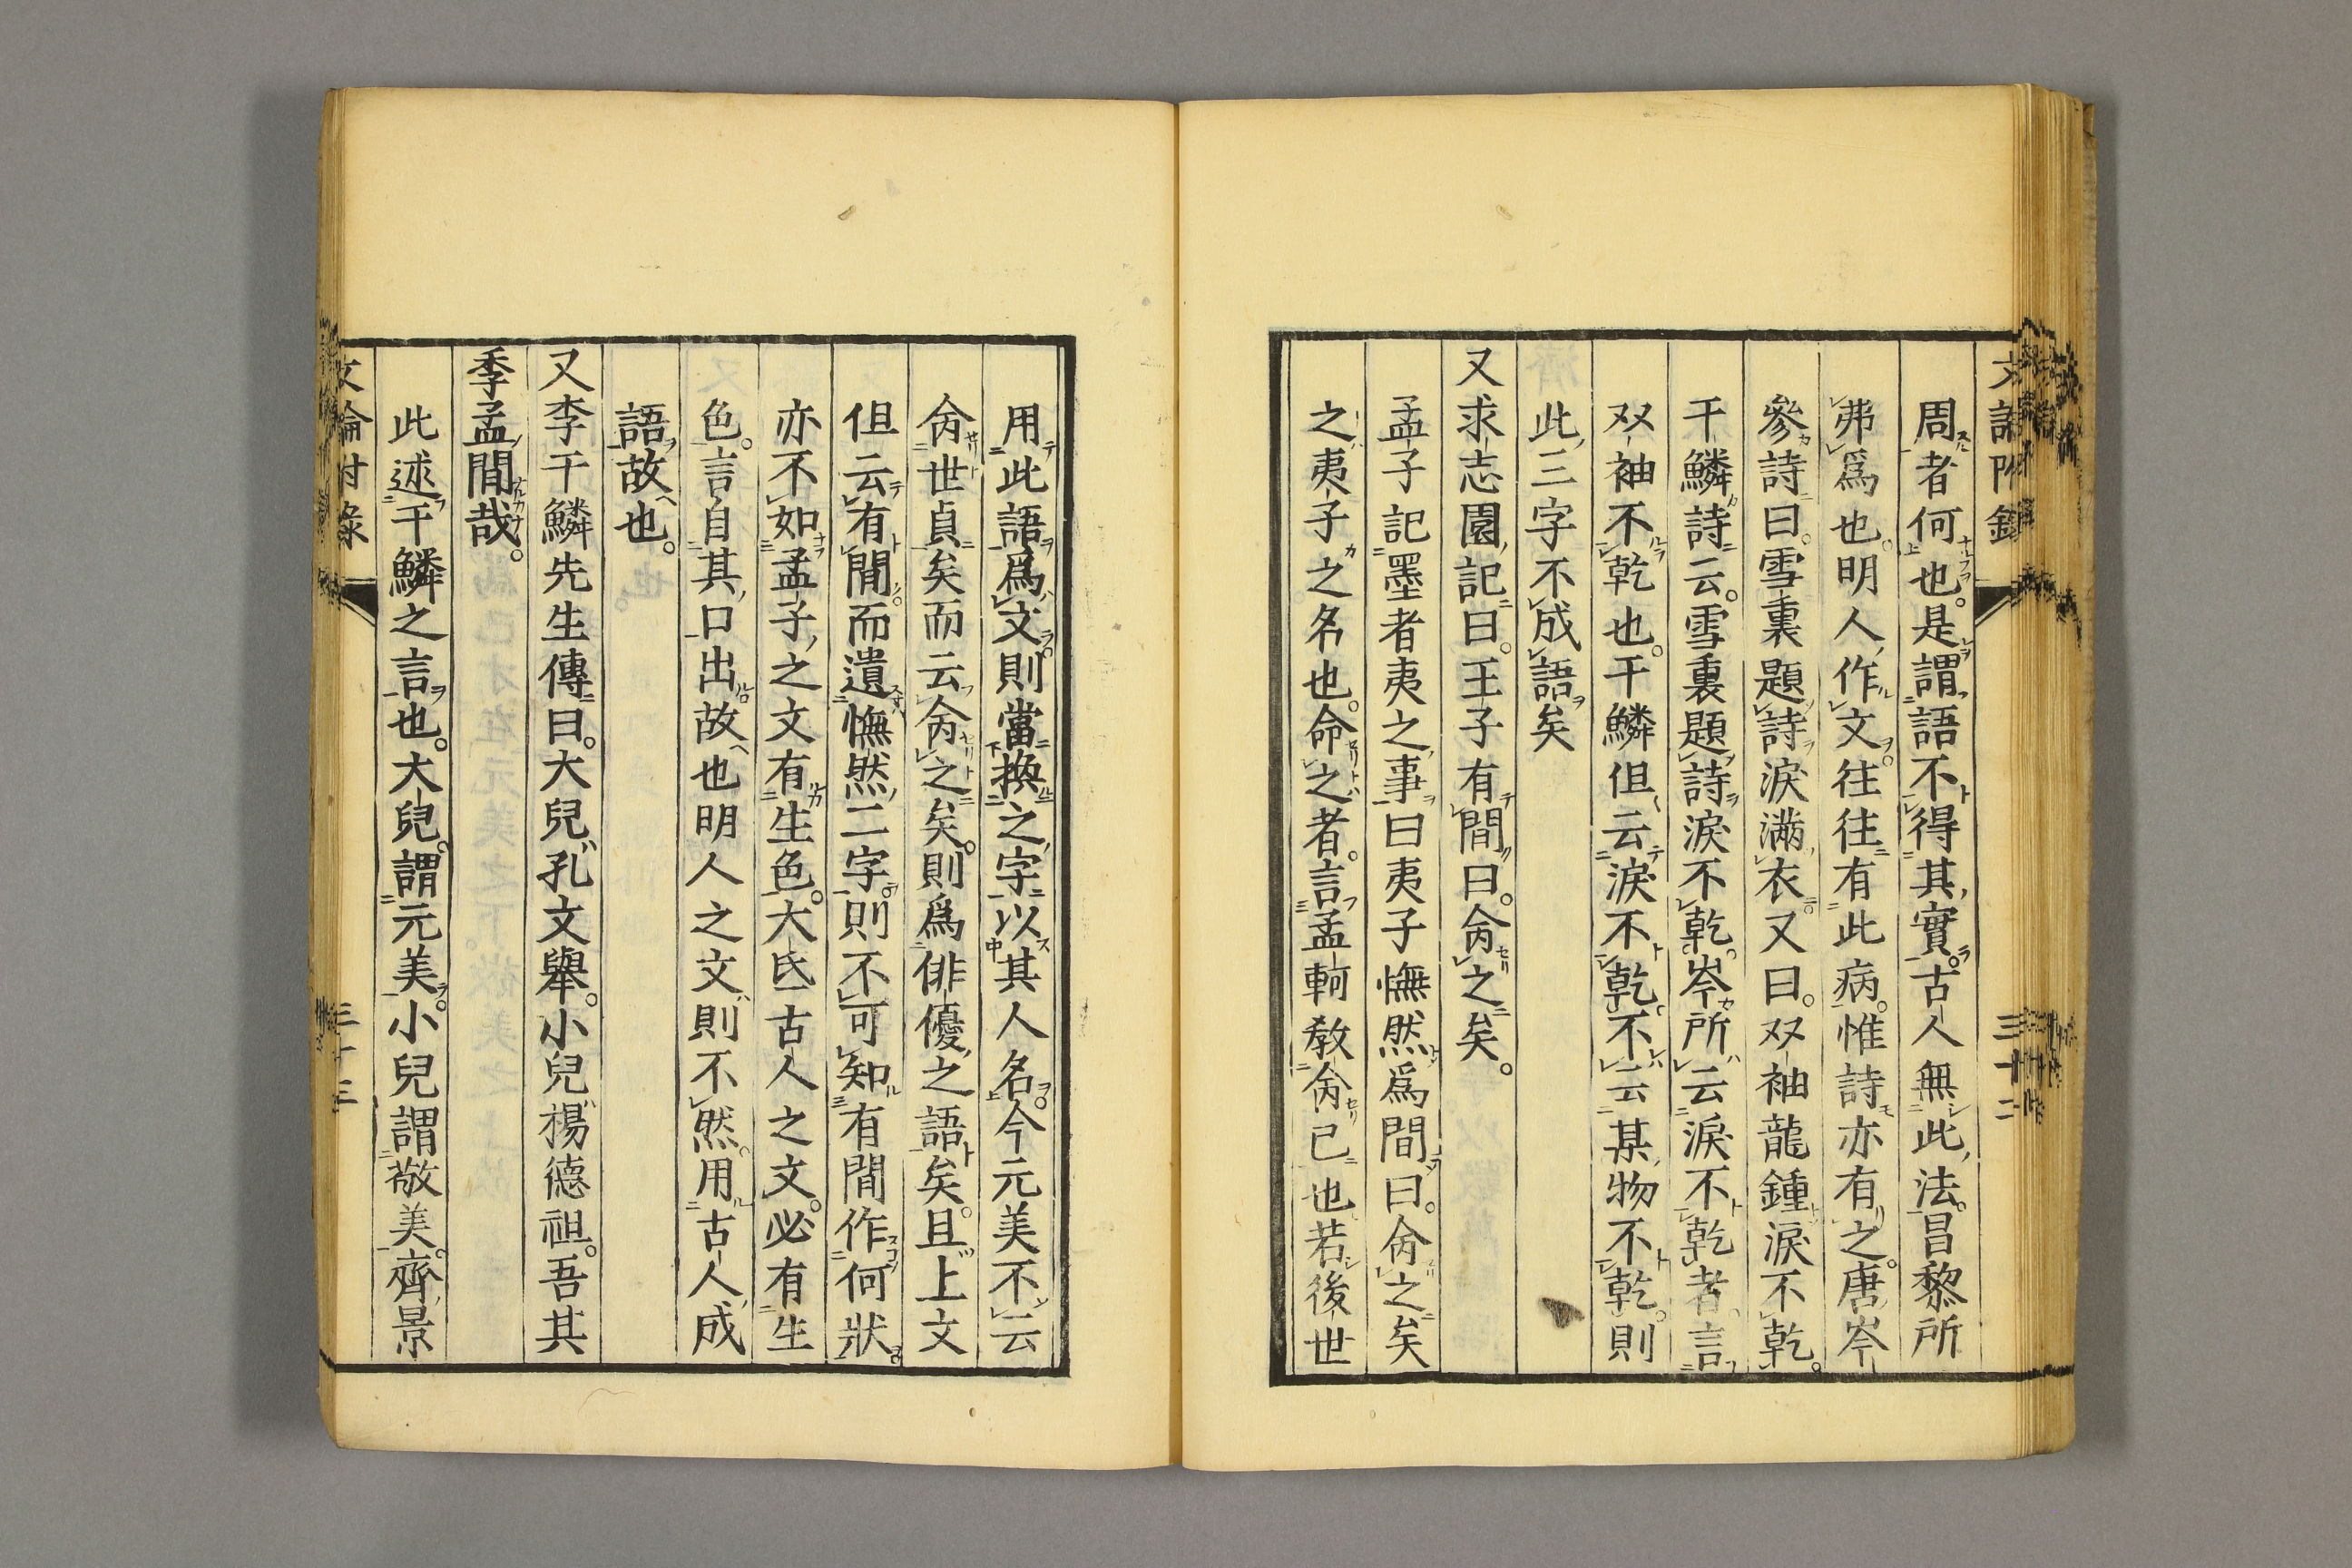 周者何也。是謂語不得其實。古人無此法。昌黎所
弗爲也。明人作文。往往有此病。惟詩亦有之。唐岑
參詩曰。雪裏題詩淚滿衣。又曰。双袖龍鍾淚不乾。
于鱗詩云。雪裏題詩淚不乾。岑所云淚不乾者。言
双袖不乾也。于鱗但云淚不乾。不云某物不乾。則
此三字不成語矣
又求志園記曰。王子有間曰。命之矣。
孟子記墨者夷之事曰夷子憮然爲間曰。命之矣
之夷子之名也。命之者。言孟軻敎命已也若後世
用此語爲文。則當換之字以其人名。今元美不云
命世貞矣而云命之矣。則爲俳優之語矣。且上文
但云有間而遺憮然二字。則不可知有間作何狀
亦不如孟子之文有生色。大氐古人之文。必有生
色。言自其口出故也明人之文則不然。用古人成
語故也。
又李于鱗先生傳曰。大兒孔文舉。小兒楊德祖。吾其
季孟間哉。
此述于鱗之言也。大兒謂元美。小兒謂敬美。齊景
文論付錄
三十三